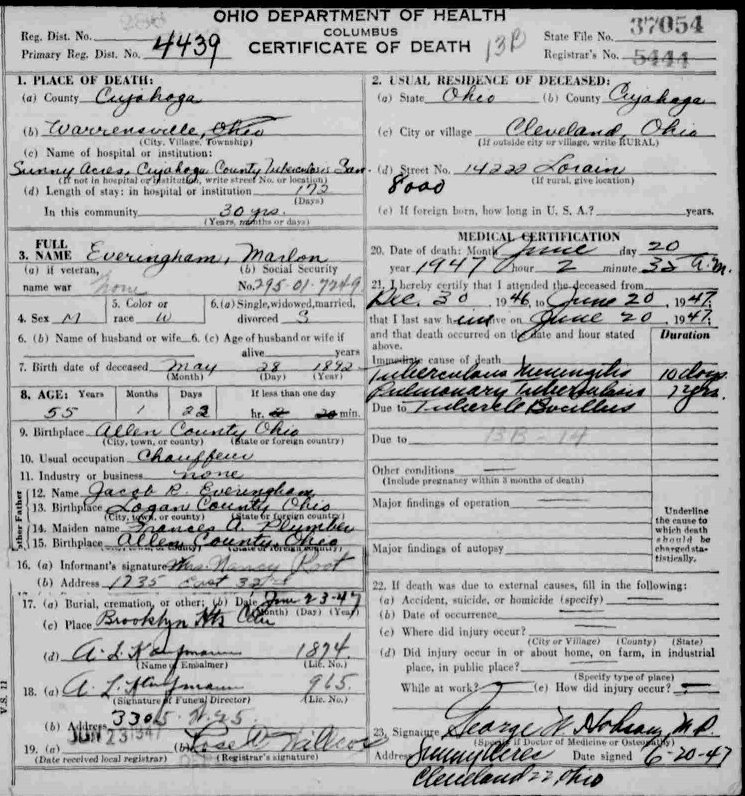 OHIO DEPARTMENT OF HEALTH
COLUMBUS
CERTIFICATE OF DEATH
13B
Reg. Dist. No.
Primary Reg. Dist. No. 4439
State File No. 37054
Registrar's No. 5444
1. PLACE OF DEATH:
(a) County Cuyahoga
(b) Warrensville, Ohio
(City, Village, Township)
(c) Name of hospital or institution:
Sunny Acres, Cuyahoga County Tuberculosis San.
(If not in hospital or institution, write street No. or location)
(d) Length of stay: in hospital or institution 172
(Days)
In this community 30 yrs.
(Years, months or days)
2. USUAL RESIDENCE OF DECEASED:
(a) State Ohio (b) County Cuyahoga
(c) City or village Cleveland, Ohio
(If outside city or village, write RURAL)
(d) Street No. Lorain
8000 (If rural, give location)
(e) If foreign born, how long in U. S. A.? years.
3. FULL NAME Everingham, Marlon
(a) if veteran, name war none
(b) Social Security No. 295-01-7249
4. Sex M
5. Color or race W
6. (a) Single, widowed, married, divorced S
6. (b) Name of husband or wife
6. (c) Age of husband or wife if alive years
7. Birth date of deceased May 28 1892
(Month) (Day) (Year)
8. AGE: Years Months Days If less than one day
55 1 22 hr. min.
9. Birthplace Allen County Ohio
(City, town, or county) (State or foreign country)
10. Usual occupation Chauffeur
11. Industry or business none
Father
12. Name Jacob R. Everingham
13. Birthplace Logan County Ohio
(City, town, or county) (State or foreign country)
14. Maiden name Frances A. Plumber
15. Birthplace Allen County, Ohio
(City, town, or county) (State or foreign country)
16. (a) Informant's signature Mrs. Nancy Root
(b) Address 1735 East 32
17. (a) Burial, cremation, or other; (b) Date June 23-47
(Month) (Day) (Year)
(c) Place Brooklyn Hts Cem
(d) A. L. Kaufmann 1874
(Name of Embalmer) (Lic. No.)
18. (a) A. L. Kaufmann 965
(Signature of Funeral Director) (Lic. No.)
(b) Address 3305 W. 25
19. (a) JUN 23 1947 (b) Rose A. Willcox
(Date received local registrar) (Registrar's signature)
V.S. 11
MEDICAL CERTIFICATION
20. Date of death: Month June day 20
year 1947 hour 2 minute 35 a.m.
21. I hereby certify that I attended the deceased from
Dec. 30, 1946, to June 20, 1947,
that I last saw him alive on June 20, 1947,
and that death occurred on the date and hour stated above.
Duration
Immediate cause of death
Tuberculous Meningitis 10 days
Pulmonary Tuberculosis 7 yrs.
Due to Tubercle Bacillus
Due to 13B-14
Other conditions
(Include pregnancy within 3 months of death)
Major findings of operation
Major findings of autopsy
Underline the cause to which death should be charged statistically.
22. If death was due to external causes, fill in the following:
(a) Accident, suicide, or homicide (specify)
(b) Date of occurrence
(c) Where did injury occur?
(City or Village) (County) (State)
(d) Did injury occur in or about home, on farm, in industrial
place, in public place?
(Specify type of place)
While at work? (e) How did injury occur?
23. Signature George W. Hobson, M.D.
(Specify if Doctor of Medicine or Osteopathy)
Address Sunny Acres Date signed 6-20-47
Cleveland 22, Ohio